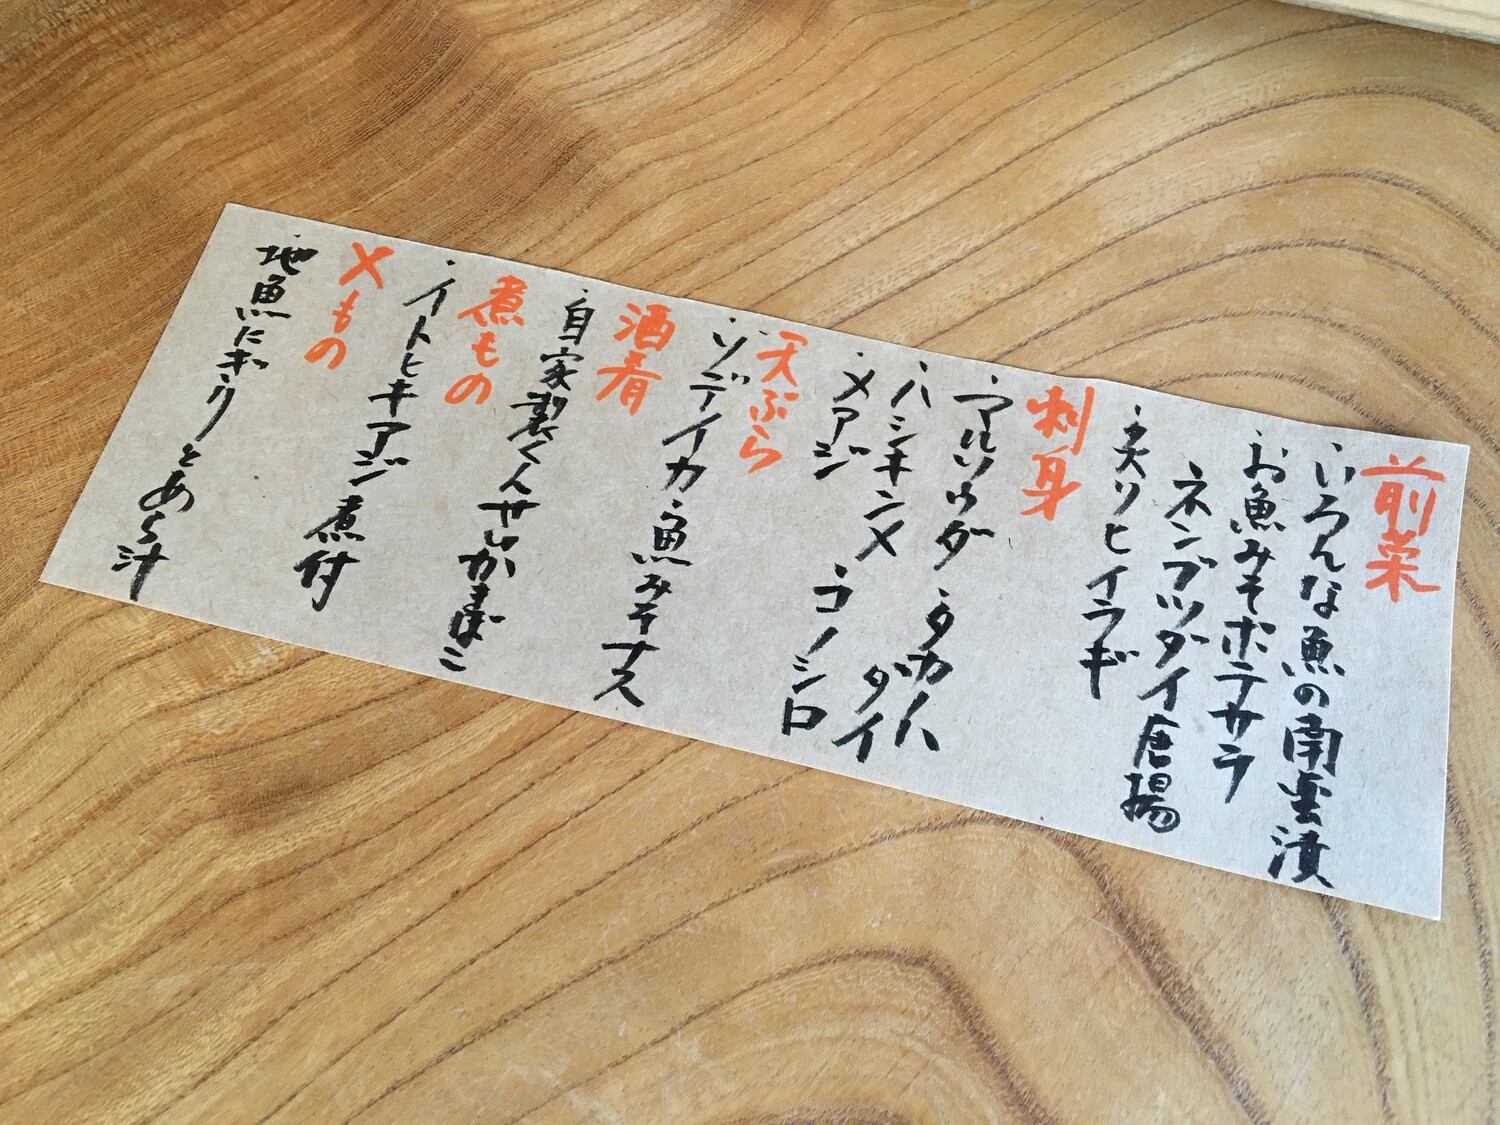 前菜
・いろんな魚の南蛮漬
・お魚みそポテサラ
ネンブツダイ唐揚
・炙りヒイラギ
刺身
・マルソウダ ・タカノハダイ
・ハシキンメ
・メアジ ・コノシロ
天ぷら
・ソデイカ ・魚みそナス
酒肴
・自家製くんせいかまぼこ
煮もの
・イトヒキアジ煮付
〆もの
・地魚にぎりとあら汁